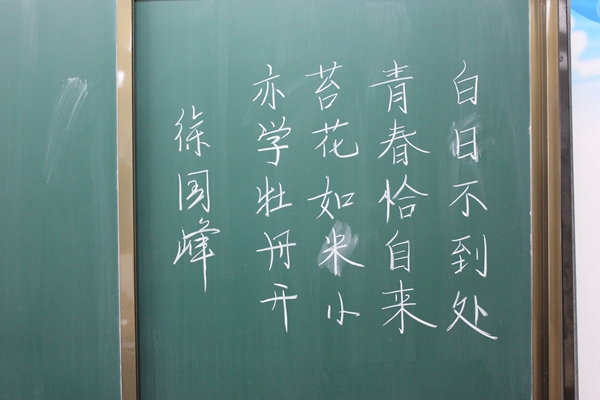 白日不到处
青春恰自来
苔花如米小
亦学牡丹开
徐国峰